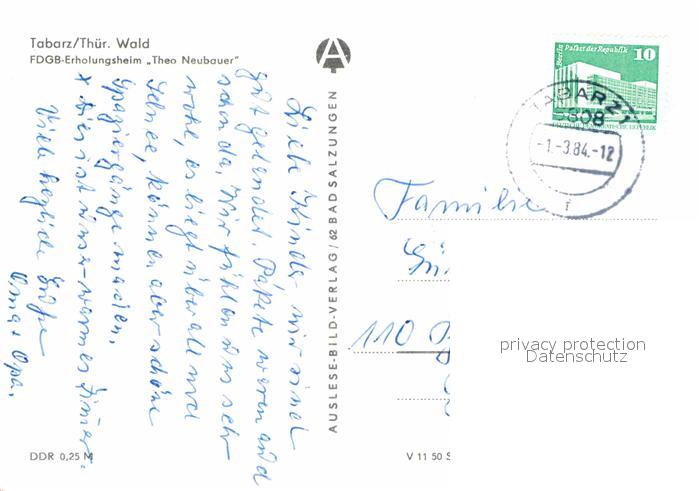 Tabarz/Thür. Wald
FDGB-Erholungsheim „Theo Neubauer"
Liebe Kinder wir sind
gut gelandet. Pakete waren auch
schon da. Wir fühlen uns sehr
wohl, es liegt überall noch
Schnee, können aber schöne
Spaziergänge machen.
Hier ist immer warmes Zimmer.
Viele herzliche Grüße
Oma + Opa.
DDR 0,25 M
AUSLESE-BILD-VERLAG / 62 BAD SALZUNGEN
V 11 50
Berlin Palast der Republik 10
DEUTSCHE DEMOKRATISCHE REPUBLIK
TABARZ 1
5808
-1.-3.84.-12
f
Familie
110
privacy protection
Datenschutz